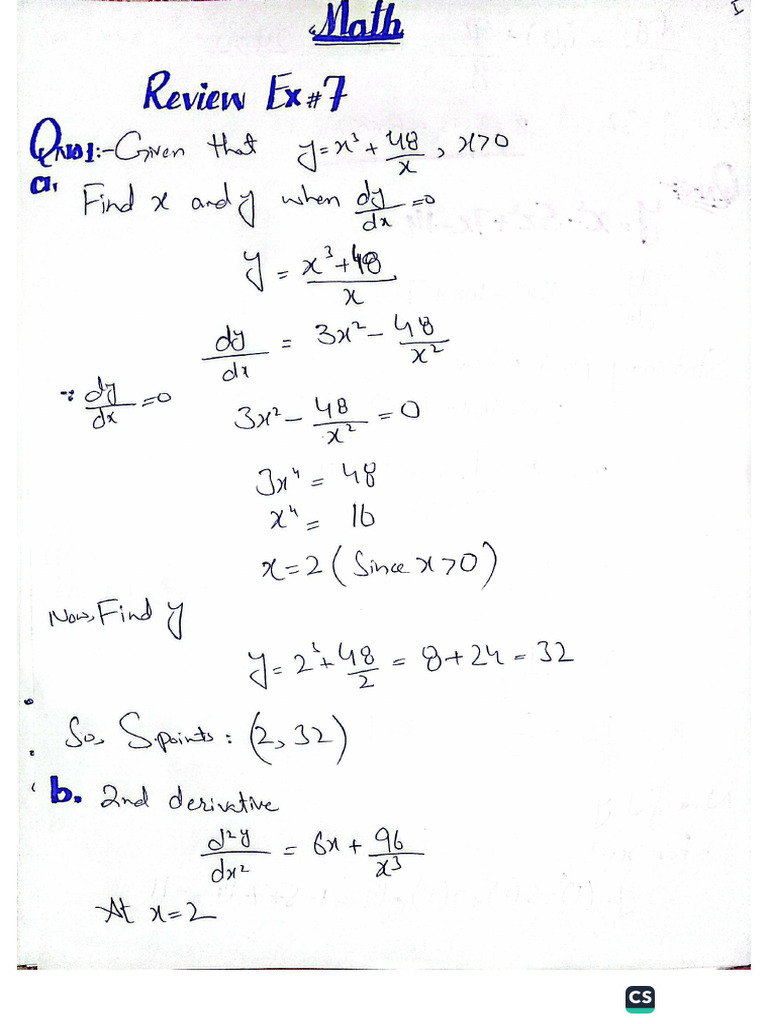 I
Math
Review Ex#7
QNO1:- Given that y = x³ + 48/x, x>0
a. Find x and y when dy/dx = 0
y = x³+48/x
dy/dx = 3x² - 48/x²
∵ dy/dx = 0
3x² - 48/x² = 0
3x⁴ = 48
x⁴ = 16
x = 2 (Since x>0)
Now, Find y
y = 2³ + 48/2 = 8 + 24 = 32
So, S.points: (2, 32)
b. 2nd derivative
d²y/dx² = 6x + 96/x³
At x = 2
CS